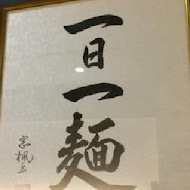 一日一麺